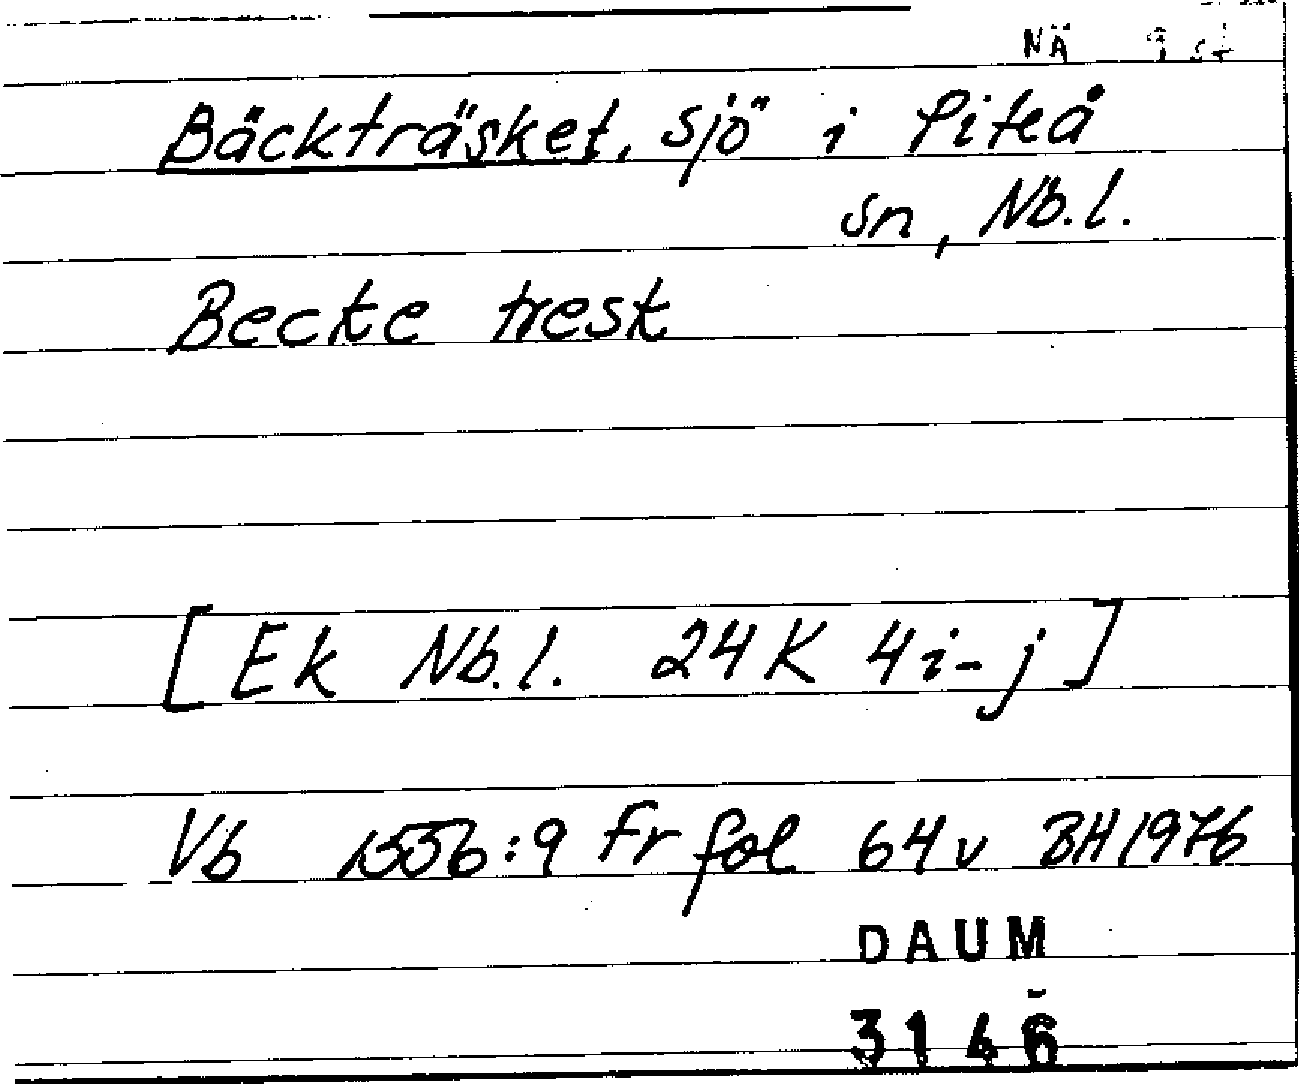 NÄ 9 st
Bäckträsket, sjö i Piteå
sn, Nb.l.
Becke tresk
[Ek Nb.l. 24K 4i-j]
Vb 1556:9 Fr fol 64v BH 1976
DAUM
3146